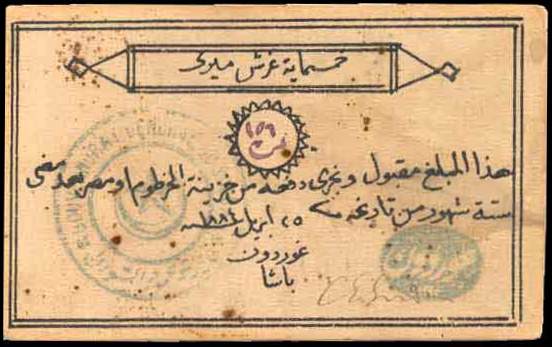 خمسماية غرش ميرى
نمرة
١٥٦
هذا المبلغ مقبول وتجرى دفعه من خزينة الخرطوم او مصر بعد مضى
ستة شهور من تاريخه
٢٥ ابريل ١٨٨٤ سنه
غوردون
باشا